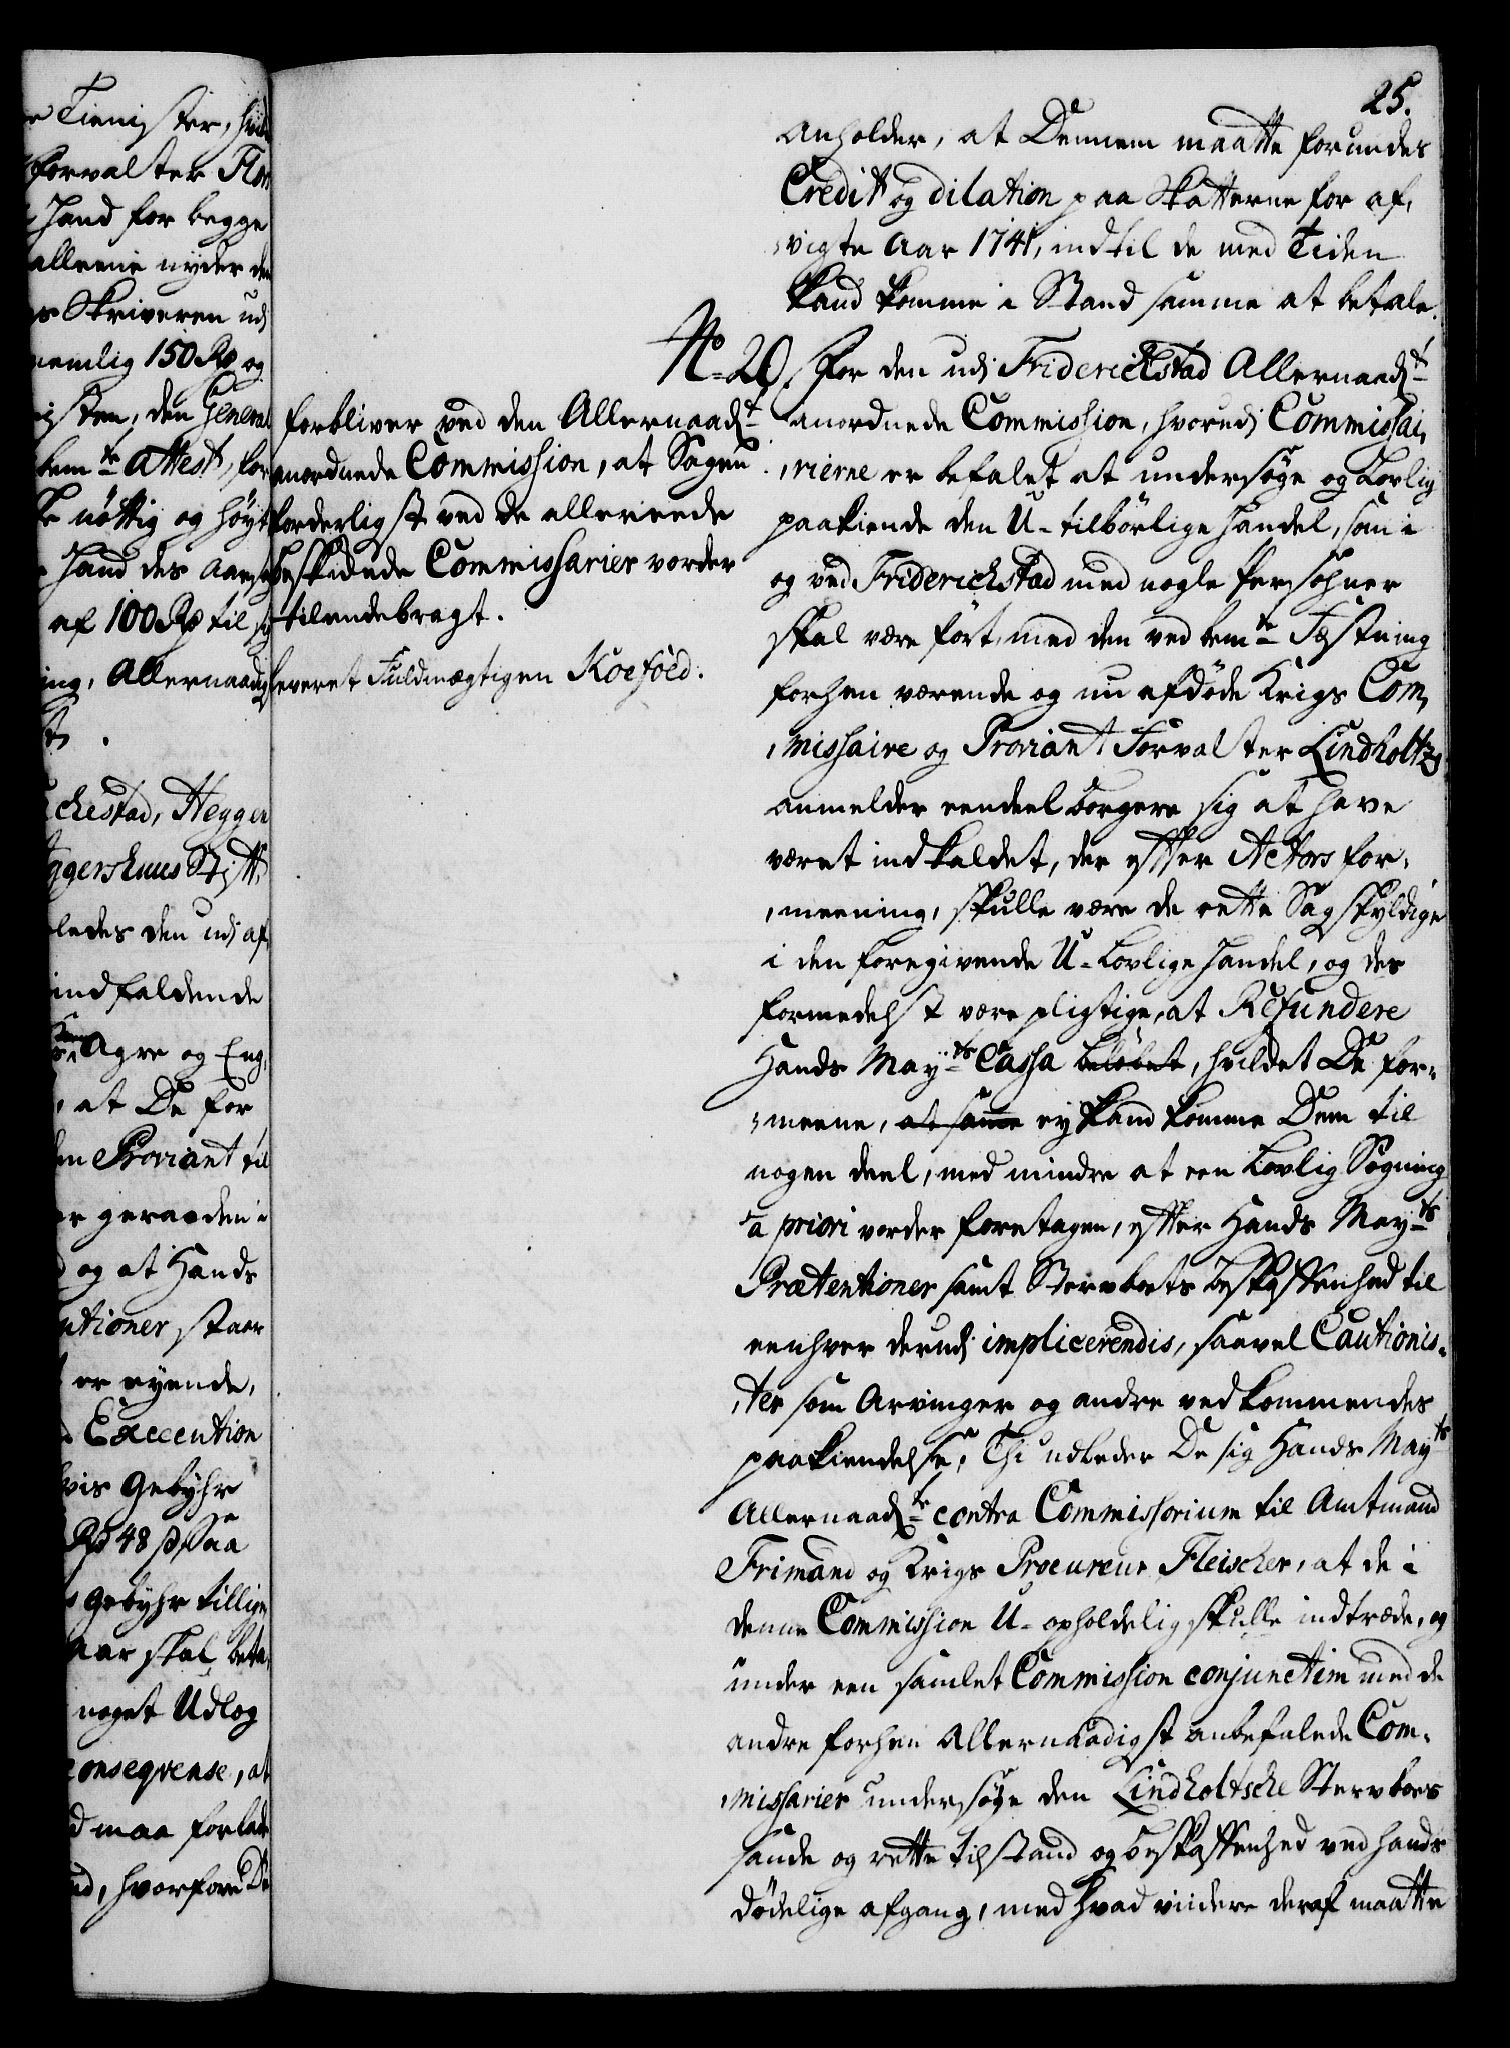 25.
anholder, at Dennem maatte forundes
Credit og dilation paa Skatterne for af,
vigte Aar 1741, indtil de med Tiden
kand komme i Stand samme at betale.
No. 20. For den udj Friderichstad Allernaadst
anordnede Commission, hvorudj Commissai,
rierne er befalet at undersøge og Lovlig
paakiende den U-tilbörlige Handel, som i
og ved Friderichstad med nogle Persohner
skal være fört, med den ved bemte Fæstning
forhen værende og nu afdöde Krigs Com,
missaire og Proviant Forvalter Lindholtz,
anmelder eendeel borgere sig at have
været indkaldet, der efter Actors for,
meening, skulle være de rette Sagskyldige
i den foregivende U-Lovlige Handel, og des
formedelst være pligtige, at Refundere
Hands Mayts Cassa beløbet, hvildet De for,
meene, at samme ey kand komme Dem til
nogen deel, med mindre at een Lovlig Søgning
a priori vorder foretagen, efter Hands Mayts
Prætentioner samt Stervboets beskaffenhed til
eenhver derudj implicerendis, saavel Cautionis,
ter som Arvinger og andre vedkommendes
paakiendelse; Thi udbeder De sig Hands Mayts
Allernaadste contra Commissorium til Amtmand
Frimand og Krigs Procureur Fleischer, at de i
denne Commission U-opholdelig skulle indtræde, og
under een samlet Commission conjunctim med de
andre forhen Allernaadigst anbefalede Com,
missarier undersøge den Lindholtsche Stervboes
sande og rette tilstand og beskaffenhed ved hands
dödelige afgang, med hvad viidere deraf maatte
forbliver ved den Allernaadst
anordnede Commission, at Sagen
forderligst ved de allereede
beskikede Commissarier vorder
tilendebragt.
leveret Fuldmægtigen Koefoed.
Tienister,
forvalter
Haand for begge
alleene nyder den
Skriveren udj
nemlig 150 Rd og
den General
bemte Attest, for
nöttig og höyt
Haand des
af 100 Rd til
Allernaadig
chestad, Heggen
ggershuus Stift,
ledes den udj af,
indfaldende
Agre og Eng,
at De for
Proviant til
geraaden i
og at Hands
ntioner staar
er eyende,
Execution
vis Gebyhr
Rd 48 s, saa
Gebyhr tillige
aar skal beta,
noget Udlæg
onseqvense, at
maa forlade
hvorfore De